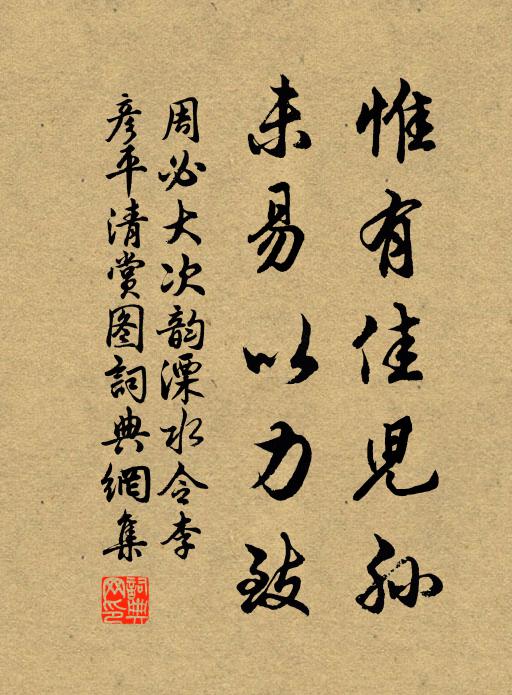 惟有佳児孙
未易以力致
周必大次韵溧水令李
彦平清賞图詞典網集